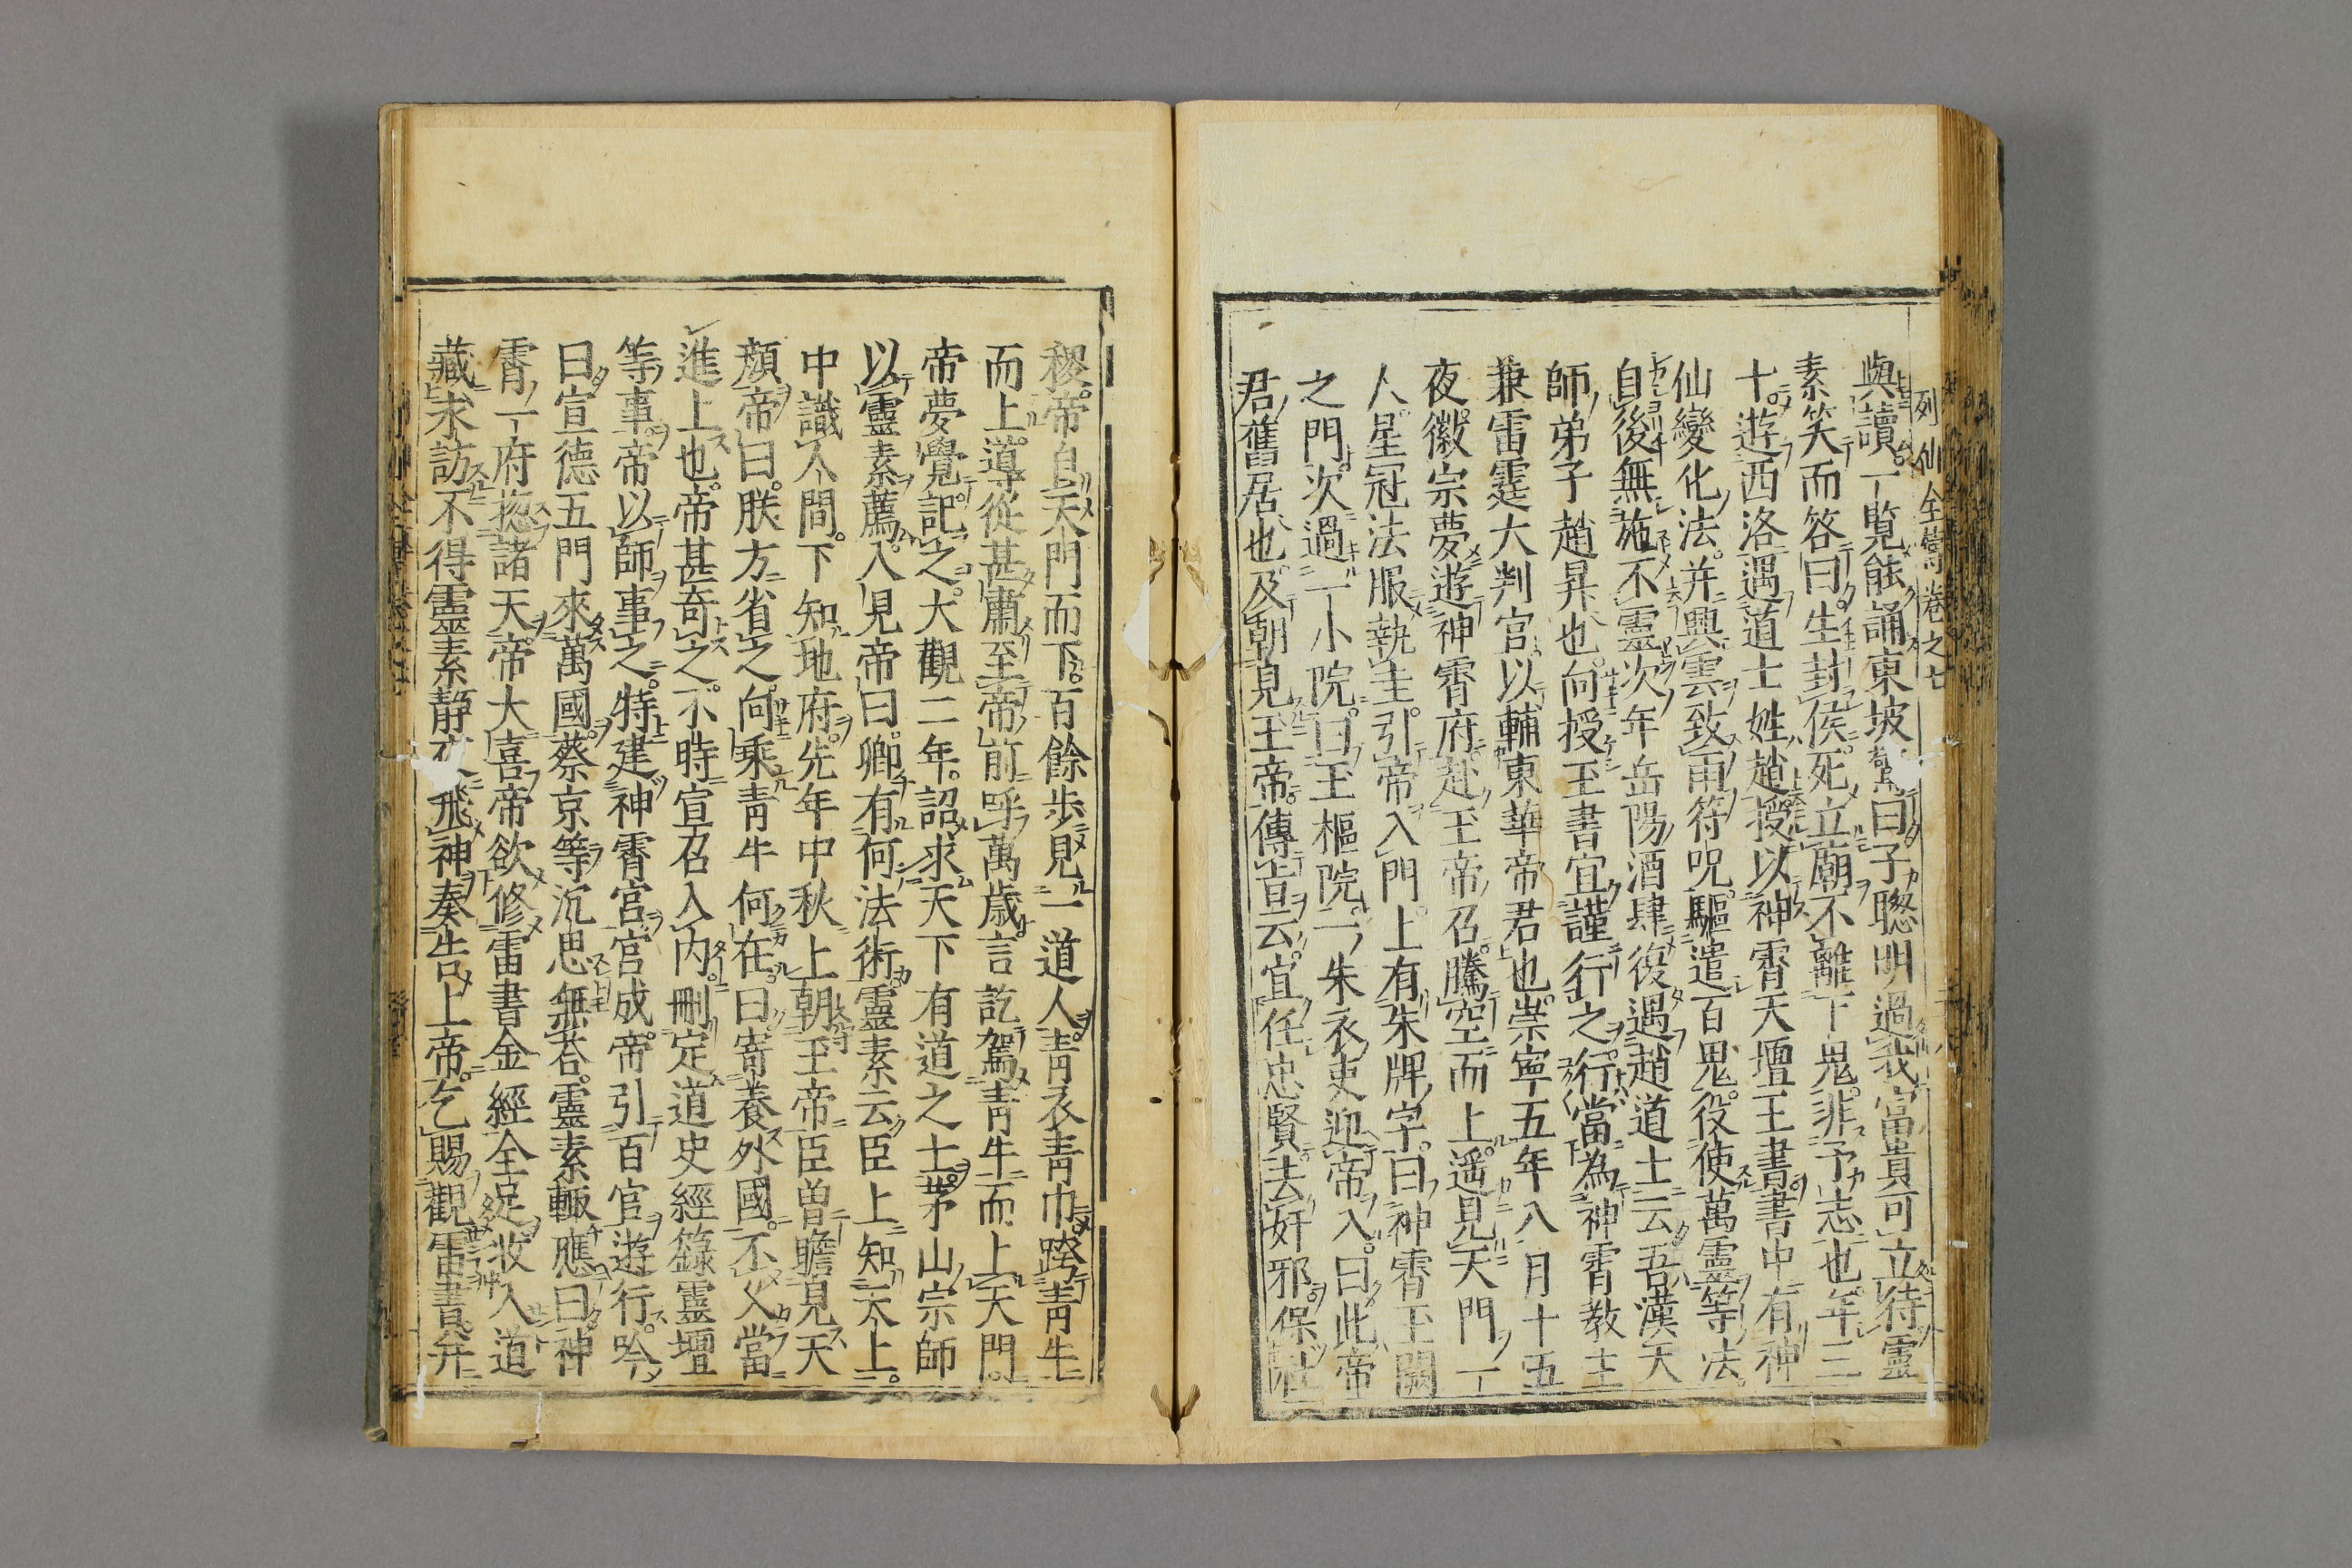 列仙全傳卷之七
與讀一覧能誦東坡驚曰子聰明過我富貴可立待靈
素笑而答曰生封侯死立廟不離下鬼非予志也年三
十遊西洛遇道士姓趙授以神霄天壇玉書書中有神
仙變化法并興雲致雨符咒驅遣百鬼役使萬靈等法
自後無施不靈次年岳陽酒肆復遇趙道士云吾漢天
師弟子趙昇也向授玉書宜謹行之行當為神霄教主
兼雷霆大判官以輔東華帝君也崇寧五年八月十五
夜徽宗夢遊神霄府赴玉帝召騰空而上遥見天門一
人星冠法服執圭引帝入門上有朱牌字曰神霄玉闕
之門次過一小院曰玉樞院一朱衣吏迎帝入曰此帝
君舊居也及朝見玉帝傳旨云宜任忠賢去奸邪保社
稷帝自天門而下百餘歩見一道人青衣青巾跨青牛
而上導從甚肅至帝前呼萬歳言訖駕青牛而上天門
帝夢覺記之大觀二年詔求天下有道之士茅山宗師
以靈素薦入見帝曰卿有何法術靈素云臣上知天上
中識人間下知地府先年中秋上朝玉帝臣曽瞻見天
顔帝曰朕方省之向乘青牛何在曰寄養外國不久當
進上也帝甚奇之不時宣召入内刪定道史經籙靈壇
等事帝以師事之特建神霄宮宮成帝引百官遊行吟
曰宣德五門來萬國蔡京等沉思無荅靈素輒應曰神
霄一府揔諸天帝大喜帝欲修雷書金經全足收入道
藏求訪不得靈素靜夜飛神奏告上帝乞賜觀雷書并